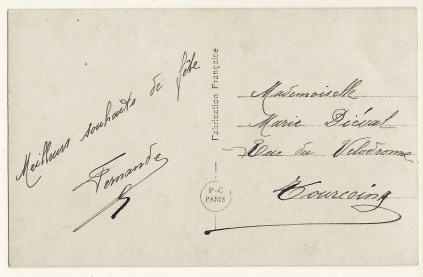 Meilleurs souhaits de fête
Fernande
Fabrication Française
P-C
PARIS
Mademoiselle
Marie Diéval
Rue du Vélodrome
Tourcoing